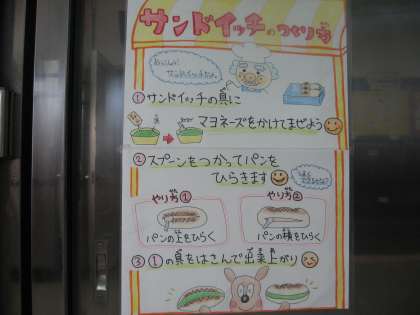 サンドイッチのつくり方
①サンドイッチの具に
マヨネーズをかけてまぜよう
②スプーンをつかってパンを
ひらきます
やり方① やり方②
パンの上をひらく パンの横をひらく
③①の具をはさんで出来上がり